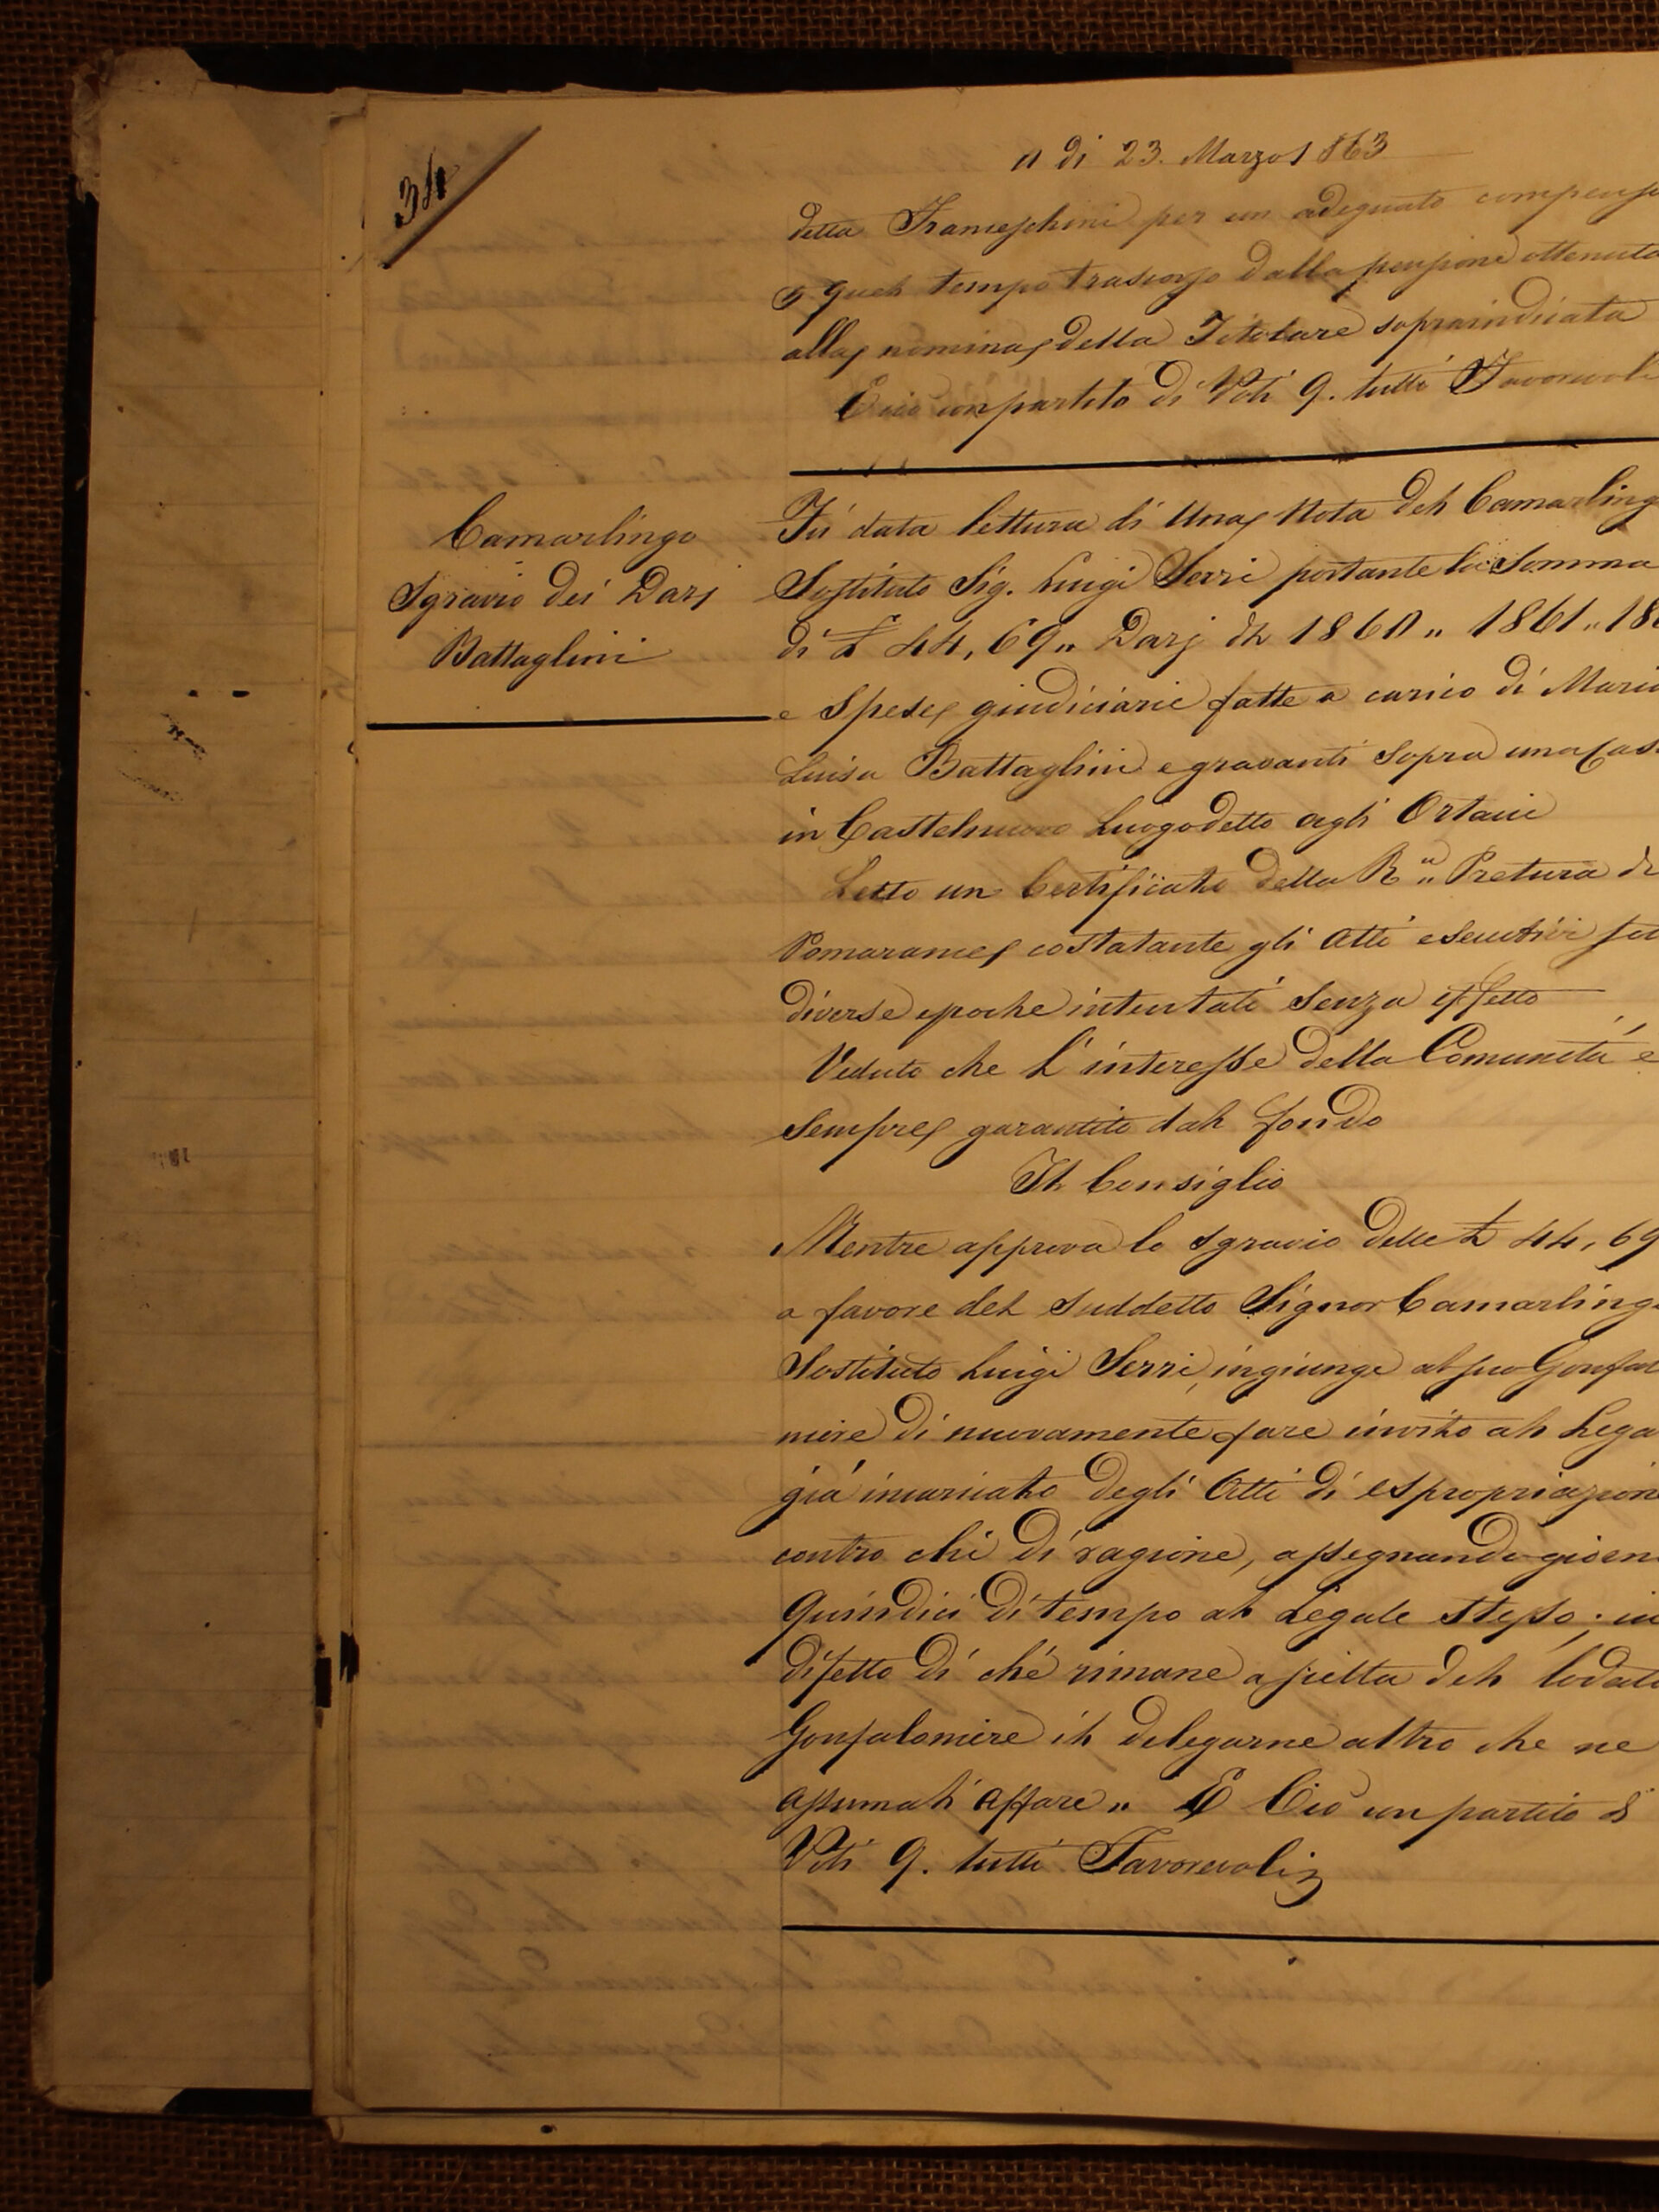 34
a dì 23. Marzo 1863
detta Franceschini per un adeguato compenso
quel tempo trascorso dalla pensione ottenuta
alla nomina della Titolare sopraindicata
E ciò con partito di Voti 9. tutti Favorevoli
Camarlingo
Sgravio dei Dazj
Battaglini
Fù data lettura di Una Nota del Camarling
Sostituto Sig. Luigi Serri portante la Somma
di £ 44,69„ Dazj di 1860„ 1861„ 18
e Spese giudiciarie fatte a carico di Maria
Luisa Battaglini e gravanti Sopra una Cas
in Castelnuovo Luogo detto agli Ortacci
Letto un Certificato della R.ª Pretura di
Pomarance costatante gli Atti esecutivi in
diverse epoche intentati Senza effetto
Veduto che L'interesse della Comunità è
Sempre garantito dal fondo
Il Consiglio
Mentre approva lo Sgravio delle £ 44,69
a favore del Suddetto Signor Camarling
Sostituto Luigi Serri, ingiunge al suo Gonfal
niere di nuovamente fare invito al Lega
già incaricato degli Atti di espropriazion
contro chi di ragione, assegnando giorn
Quindici di tempo al Legale stesso; in
difetto di chè rimane a scelta del lodato
Gonfaloniere il delegarne altro che ne
assuma l'affare„ E Ciò con partito di
Voti 9. tutti Favorevoli